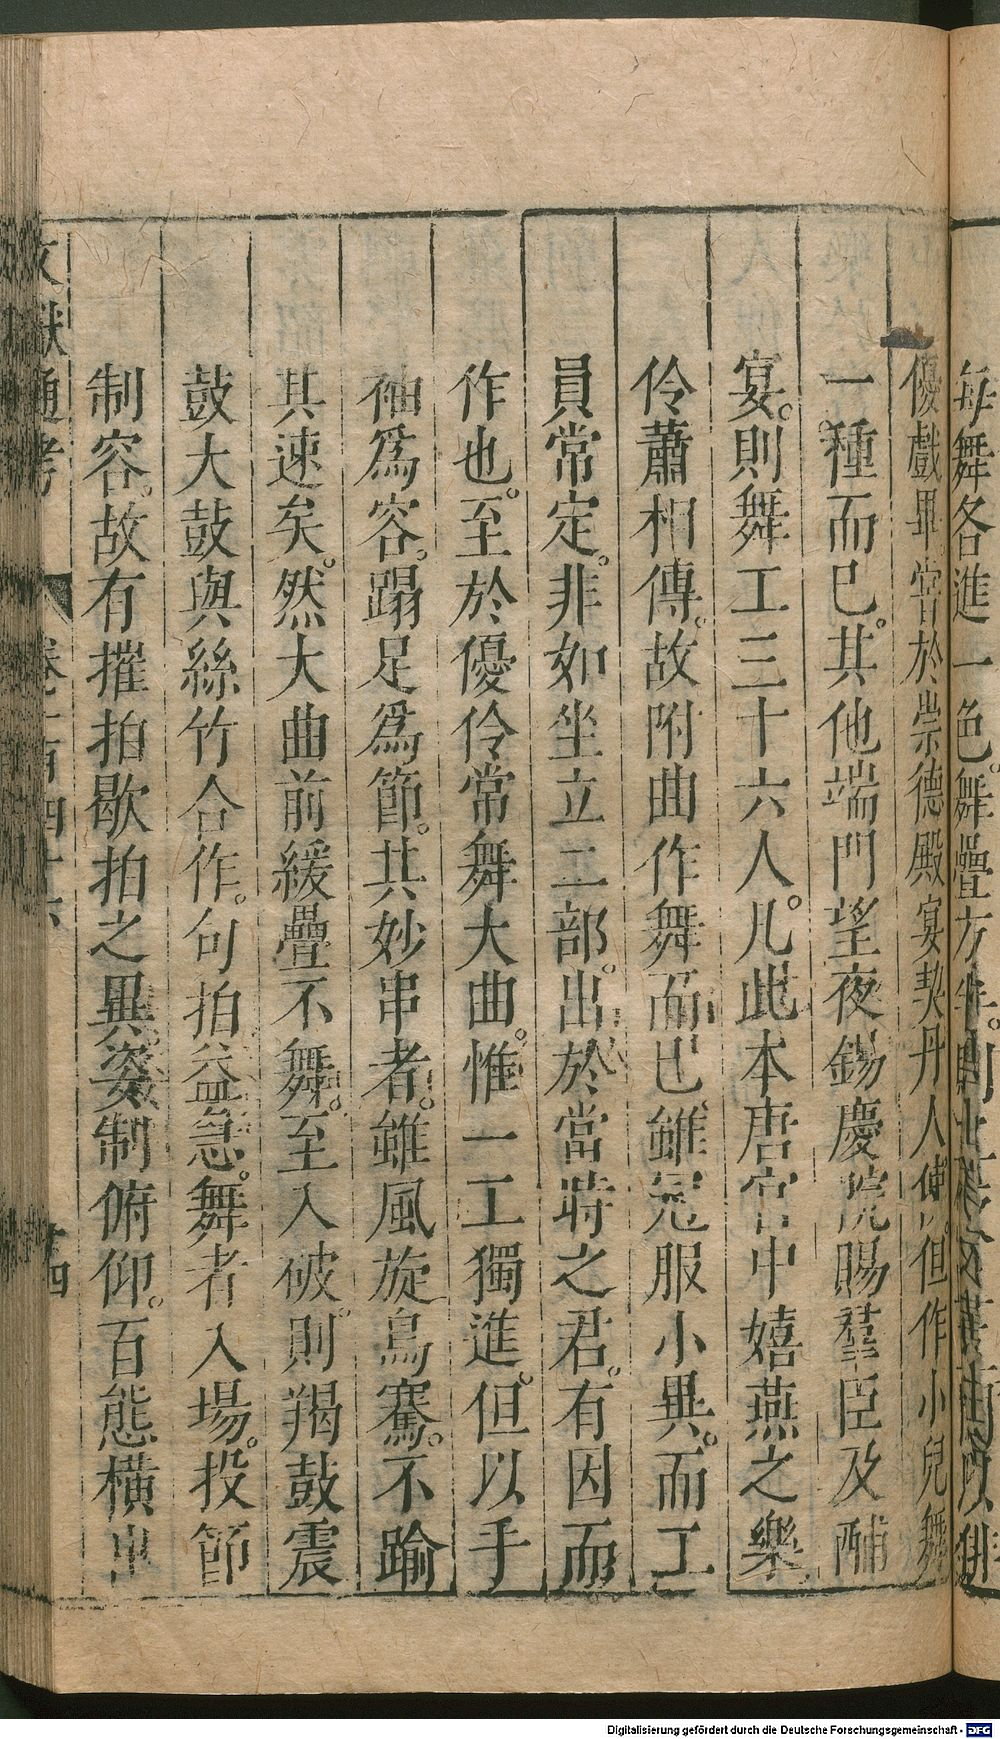 每舞各進一色舞疊方半則
優戲畢嘗於崇德殿宴契丹人使但作小兒舞
一種而已其他端門望夜錫慶院賜羣臣及酺
宴則舞工三十六人凡此本唐宫中嬉燕之樂
伶蕭相傳故附曲作舞而已雖冠服小異而工
員常定非如坐立二部出於當時之君有因而
作也至於優伶常舞大曲惟一工獨進但以手
袖爲容蹋足爲節其妙串者雖風旋鳥騫不踰
其速矣然大曲前緩疊不舞至入破則羯鼓震
鼓大鼓與絲竹合作句拍益急舞者入場投節
制容故有摧拍歇拍之異姿制俯仰百態横出
文獻通考 卷一百四十六 十四
Digitalisierung gefördert durch die Deutsche Forschungsgemeinschaft - DFG